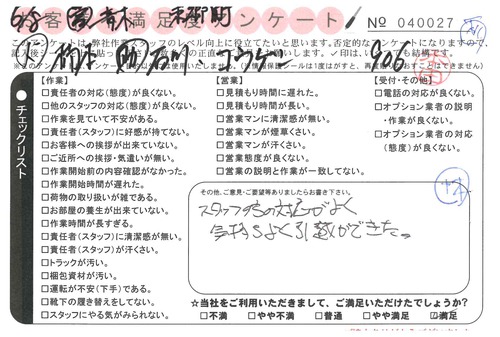 お客様満足度アンケート
No 040027
このアンケートは、弊社作業スタッフのレベル向上に役立てたいと思います。否定的なアンケートになりますので、
チェックリスト
【作業】
□責任者の対応(態度)が良くない。
□他のスタッフの対応(態度)が良くない。
□作業を見ていて不安がある。
□責任者(スタッフ)に好感が持てない。
□お客様への挨拶が出来ていない。
□ご近所への挨拶・気遣いが無い。
□作業開始前の内容確認がなかった。
□作業開始時間が遅れた。
□荷物の取り扱いが雑である。
□お部屋の養生が出来ていない。
□作業時間が長すぎる。
□責任者(スタッフ)に清潔感が無い。
□責任者(スタッフ)が汗くさい。
□トラックが汚い。
□梱包資材が汚い。
□運転が不安(下手)である。
□靴下の履き替えをしてない。
□スタッフにやる気がみられない。
【営業】
□見積もり時間に遅れた。
□見積もり時間が長い。
□営業マンに清潔感が無い。
□営業マンが煙草くさい。
□営業マンが汗くさい。
□営業態度が良くない。
□営業の説明と作業が一致してない。
【受付・その他】
□電話の対応が良くない。
□オプション業者の説明
・作業が良くない。
□オプション業者の対応
(態度)が良くない。
その他、ご意見・ご要望等ありましたらお書き下さい。
スタッフの対応がよく
気持ちよく引越ができた。
☆当社をご利用いただきまして、ご満足いただけたでしょうか?
□不満 □やや不満 □普通 □やや満足 ☑満足